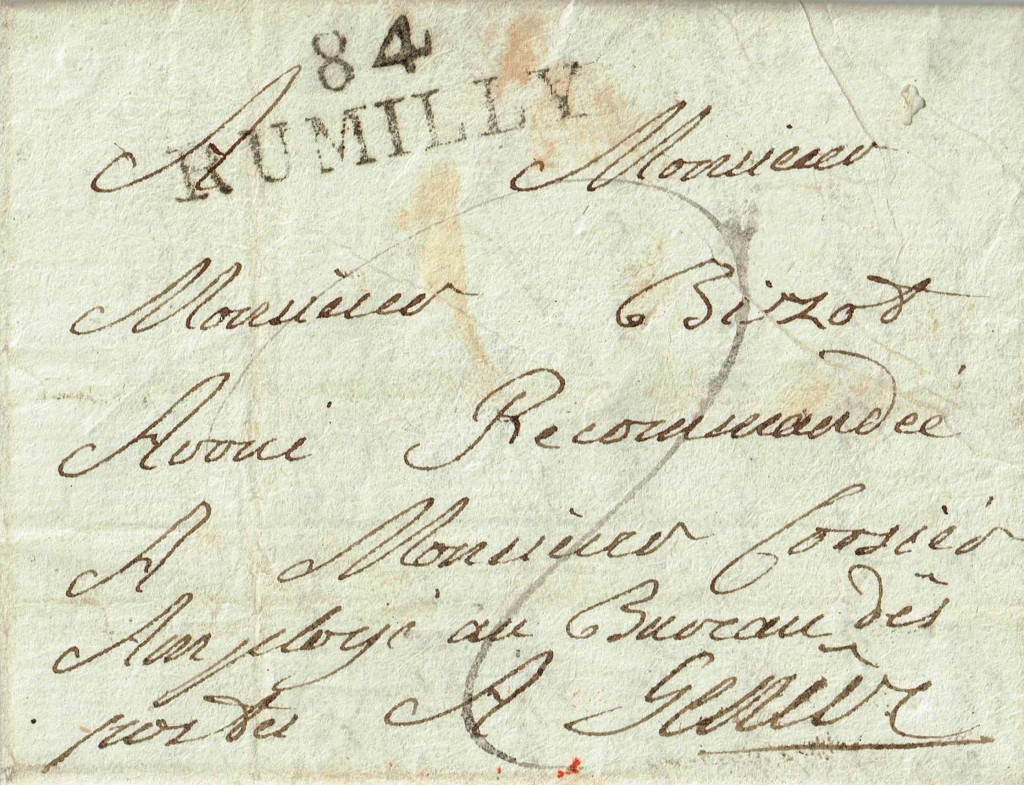 84
RUMILLY
A Monsieur
Monsieur Bizot
Avoué Recommandée
A Monsieur Corsier
Amployé au Bureau dês
postes A Genève